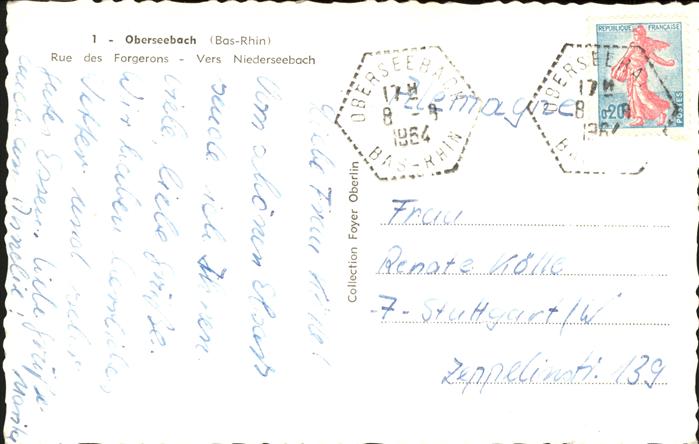 1 - Oberseebach (Bas-Rhin)
Rue des Forgerons - Vers Niederseebach
Liebe Frau Kölle!
Vom schönen Elsass
sende ich Ihnen
viele liebe Grüße.
Wir haben herrliches
Wetter und sehr
gutes Essen. Liebe Grüße
auch an
Collection Foyer Oberlin
OBERSEEBACH
17H
8 - 8
1964
BAS-RHIN
Allemagne
OBERSEEBA
17H
8 - 8
1964
BA
REPUBLIQUE FRANÇAISE
0,20
POSTES
Frau
Renate Kölle
-7- Stuttgart/W
Zeppelinstr. 139